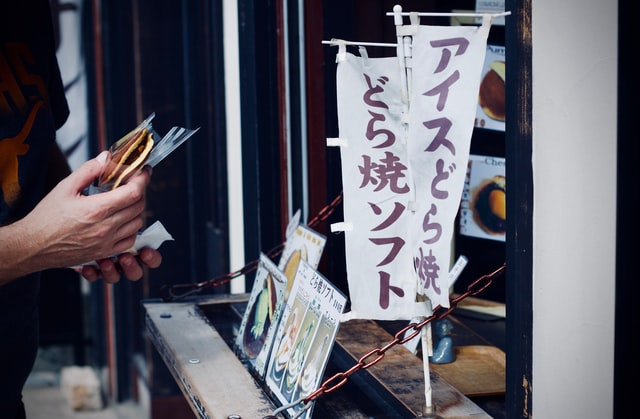 アイスどら焼
どら焼ソフト
どら焼ソフト